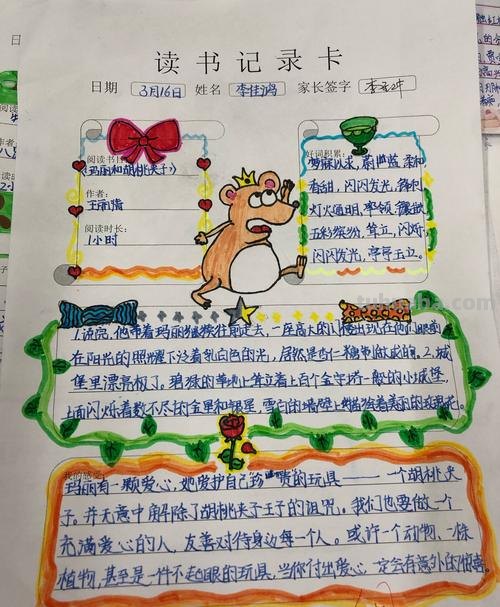 读书记录卡
日期 3月16日 姓名 李佳鸿 家长签字
阅读书目:
《玛丽和胡桃夹子》
作者:
王丽指
阅读时长:
1小时
好词积累:
梦寐以求,蔚蓝,柔和
香甜,闪闪发光,锋利
灯火通明,率领,
五彩缤纷,耸立,闪烁
闪闪发光,亭亭玉立。
1.说完,他带着玛丽继续往前走去,一座高大的门楼出现在他们眼前
在阳光的照耀下泛着乳白色的光,居然是由糖制做成的。2.城
堡里漂亮极了。碧绿的草地上耸立着上百个金字塔一般的小城堡,
上面闪烁着数不尽的金星和银星,雪白的墙壁上描绘着美丽的玫瑰花。
我的感受:
玛丽有一颗爱心,她爱护自己珍贵的玩具——一个胡桃夹
子。并无意中解除了胡桃夹子王子的诅咒。我们也要做一个
充满爱心的人,友善对待身边每一个人。或许一个动物、一株
植物,甚至是一件不起眼的玩具,当你付出爱心,一定会有意外的惊喜。